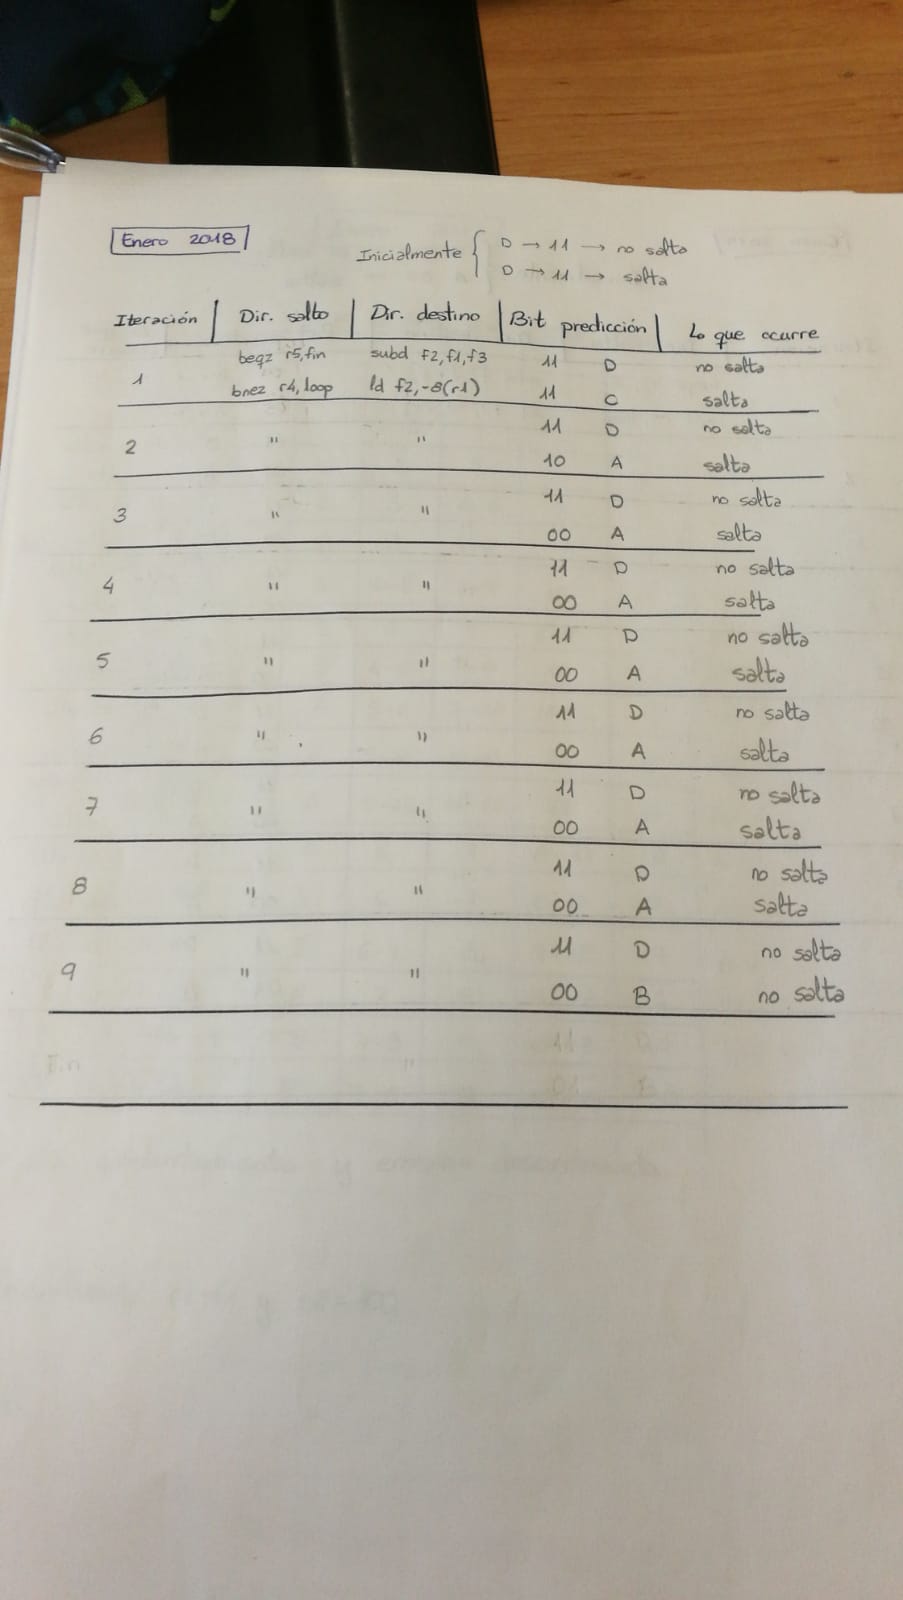 Enero 2018
Inicialmente { D → 11 → no salta
D → 11 → salta
Iteración | Dir. salto | Dir. destino | Bit predicción | Lo que ocurre
1 beqz r5,fin subd f2,f1,f3 11 D no salta
bnez r4,loop ld f2,-8(r1) 11 C salta
2 " " 11 D no salta
10 A salta
3 " " 11 D no salta
00 A salta
4 " " 11 D no salta
00 A salta
5 " " 11 D no salta
00 A salta
6 " " 11 D no salta
00 A salta
7 " " 11 D no salta
00 A salta
8 " " 11 D no salta
00 A salta
9 " " 11 D no salta
00 B no salta
Fin " 11 D
01 B